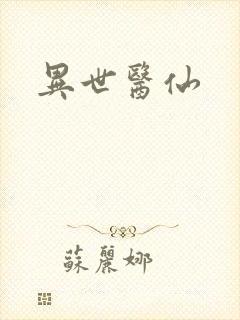 異世醫仙
蘇麗娜